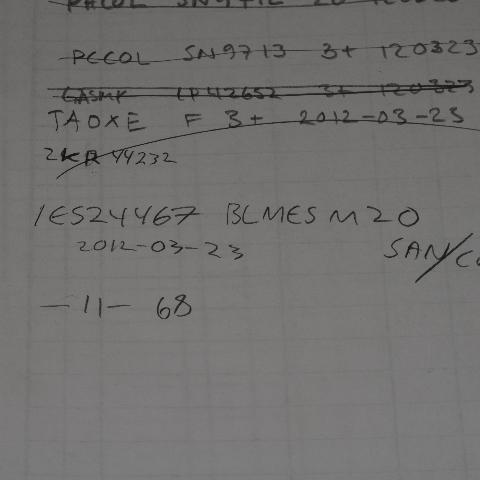 PCCOL SN9713 3+ 120323
CASMK LP42652 3+ 120323
TAOXE F 3+ 2012-03-23
2KR 44232
1ES24467 BLMES M20
2012-03-23
SAN/
-11- 68